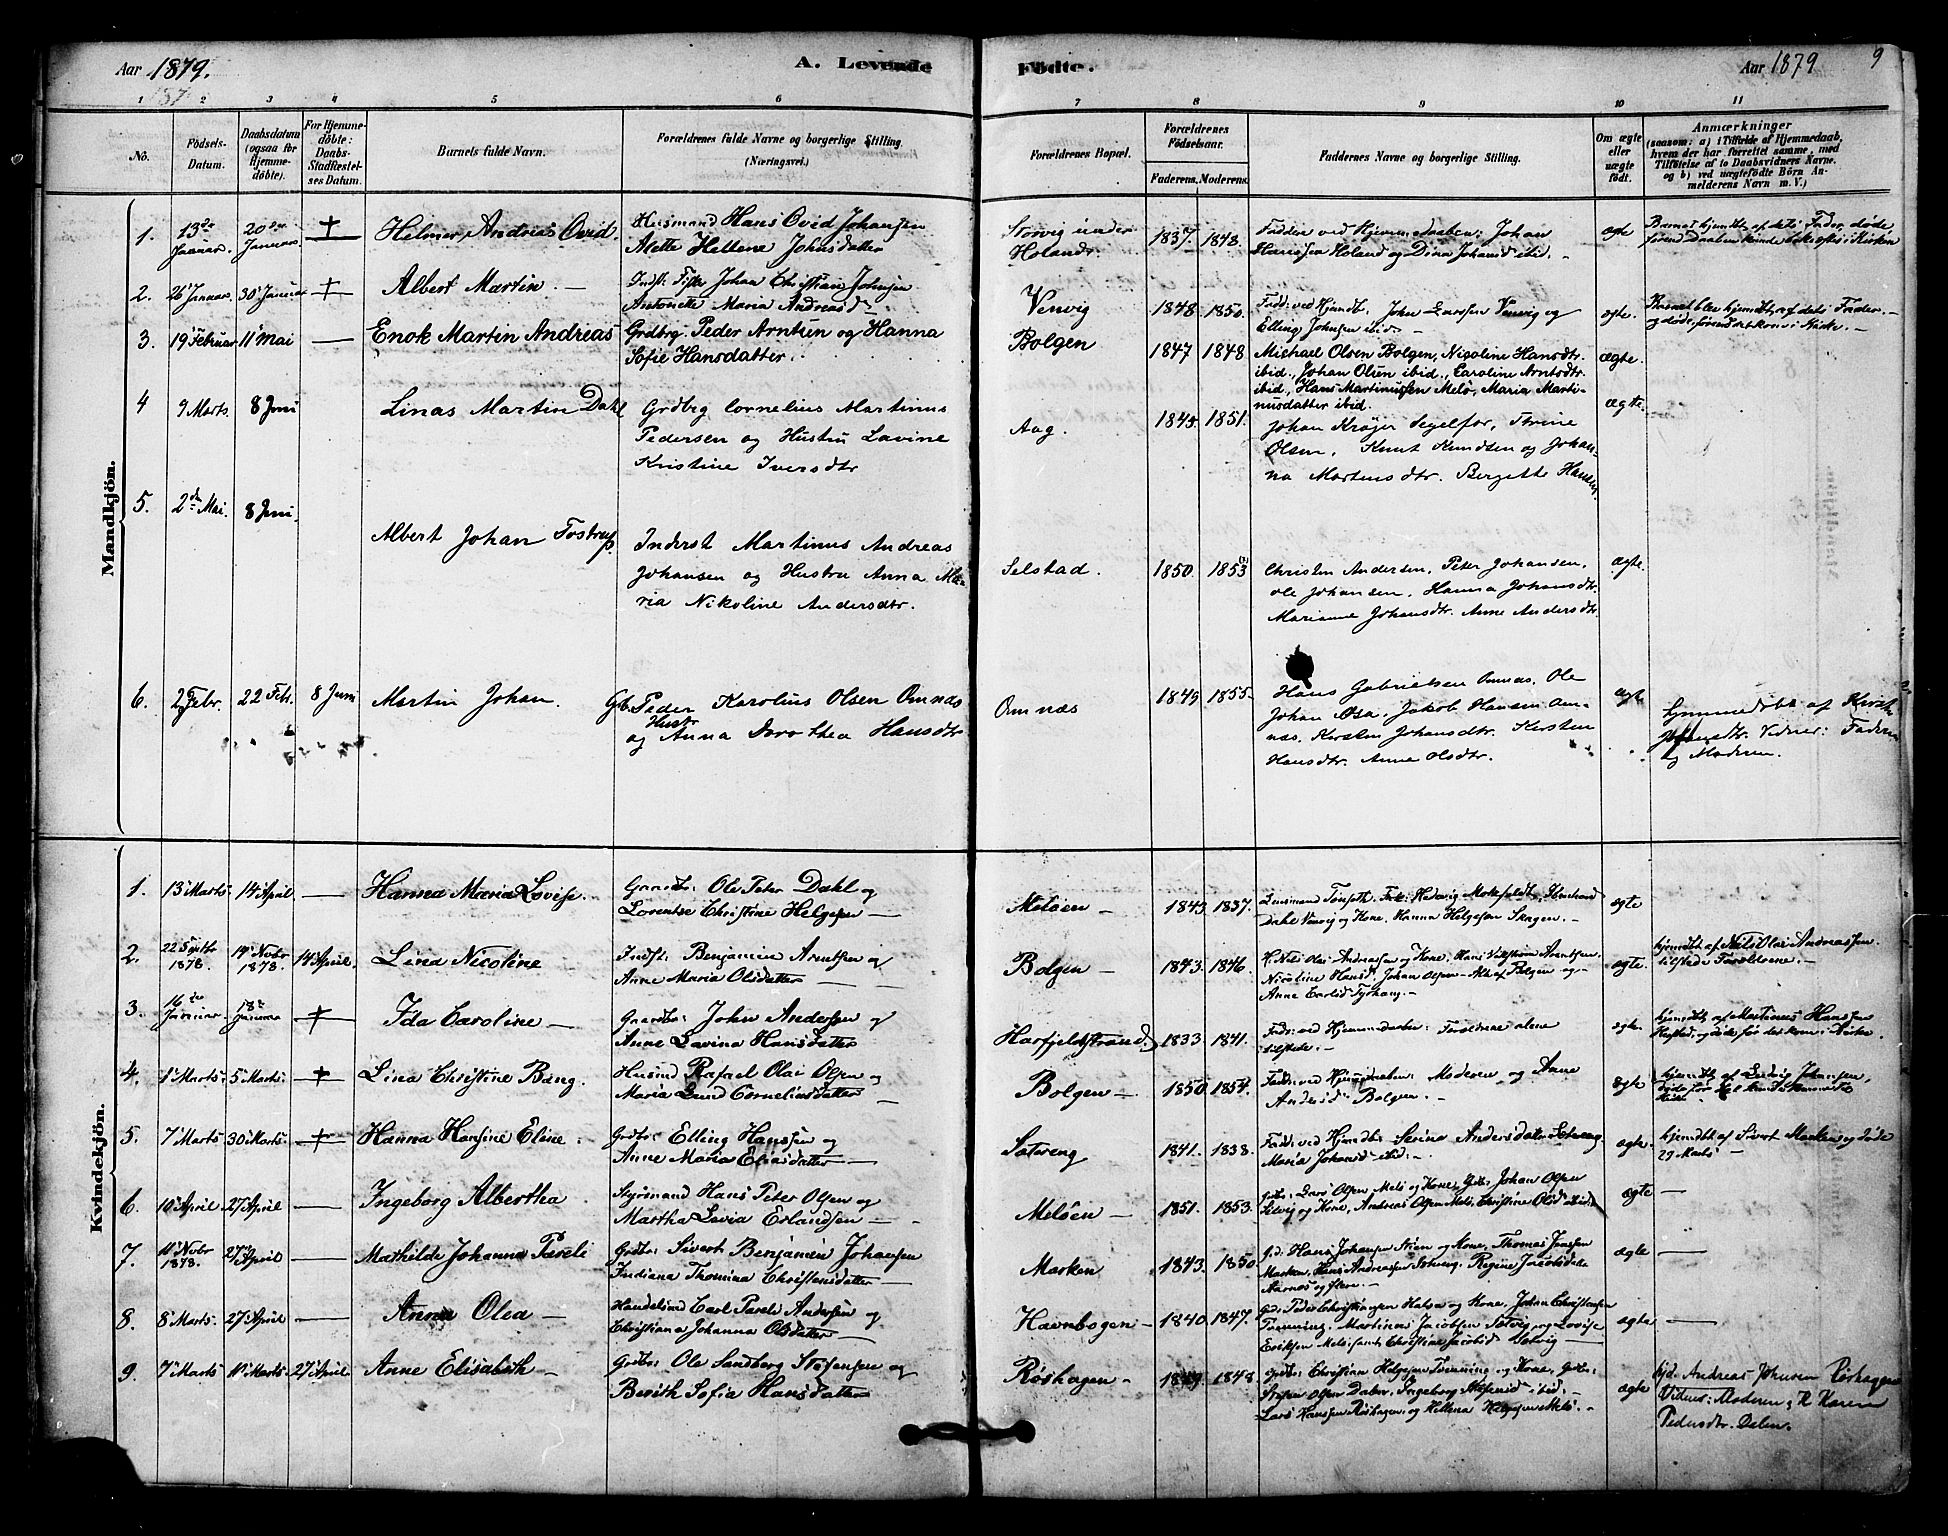 Aar 1879.
A. Levende
Födte.
Aar 1879
9
187
1 2 3 4 5 6 7 8 9 10 11
No.
Födsels-Datum.
Daabsdatum (ogsaa for Hjemme-döbte).
For Hjemme-döbte: Daabs-Stadfæstel-ses Datum.
Barnets fulde Navn.
Forældrenes fulde Navne og borgerlige Stilling
(Næringsvei.)
Forældrenes Bopæl.
Forældrenes Födselsaar.
Faderens. Moderens.
Faddernes Navne og borgerlige Stilling.
Om ægte eller uægte födt.
Anmærkninger
(saasom: a) i Tilfælde af Hjemmedaab,
hvem der har forrettet samme, med
Tilföielse af to Daabsvidners Navne.
og b) ved uægtefödte Börn An-
melderens Navn m. V.)
Mandkjön.
1. 13de Januar. 20de Januar. † Hilmer Andreas Ovid. Husmand Hans Ovid Johansen
Mette Hellene Johnsdatter
Storvig under Holandr. 1837. 1843. Faddere ved Hjemmedaaben: Johan
Hanssen Holand og Dina Johansd ibid. –
ægte
Barnet hjemdbt af dets Fader, døde,
førend Daaben kunde bekræftes i Kirken
2. 26 Januar. 30 Januar † Albert Martin. – Indst: Fisker Johan Christian Johnsen
Antonette Maria Andreasd –
Venvig 1848. 1850. Fadd: ved Hjemdb. John Larssen Venvig og
Elling Johnsen ibid –
ægte.
Barnet blev hjemdbt. af dets Fader. –
og døde, førend det kom i Kirke. –
3. 19 Februar 11 Mai — Enok Martin Andreas Grdbrg. Peder Arntzen og Hanna
Sofie Hansdatter.
Bolgen 1847 1848 Michael Olsen Bolgen, Nicoline Hansdtr.
ibid., Johan Olsen ibid., Caroline Arntsdtr.
ibid, Hans Martinussen Melö, Maria Marti-
nusdatter ibid.
ægte.
4 9 Marts. 8 Juni Linas Martin Dahl Grdbrg Cornelius Martinus
Pedersen og Hustru Lavine
Kristine Iversdtr
Aag. 1845. 1851. Johan Krøjer Segelfor, Trine
Olsen, Knut Knudsen og Johan-
na Martensdtr. Bergette Hansd.
ægte.
5. 2den Mai. 8 Juni. Albert Johan Fostrup. Inderst Martinus Andreas
Johansen og Hustru Anna Ma-
ria Nikoline Andersdtr.
Selstad. 1850. 1853 Christen Andersen, Peter Johansen.
Ole Johansen. Hanna Johansdtr.
Marianne Johansdtr. Anne Andersdtr.
ægte.
6. 2 Febr. 22 Febr. 8 Juni Martin Johan. Gb. Peder Karolius Olsen Omnæs
og Hustr Anna Dorothea Hansdtr
Omnæs 1849 1855. Hans Gabrielsen Omnæs, Ole
Johan Osa, Jakob Hansen Om-
næs. Kirsten Johansdtr. Kirsten
Hansdtr. Anne Olsdtr.
ægte
hjemmedöbt af Kirst.
Johansdtr. Vidner: Faderen
og Moderen.
Kvindekjön.
1. 13 Marts. 14 April — Hanna Maria Lovise. Gaardbr: Ole Peter Dahl og
Lorentse Christine Helgesen —
Meløen – 1843 1837. Lensmand
Dahl Venvig og Kone. Hanna Helgesen Skagen. –
ægte
2. 22 Septbr 1878. 14 Novbr 1878. 14 April. Lina Nicoline Indst: Benjamin Arntsen og
Anne Maria Olsdatter –
Bolgen – 1843. 1846. Nils Olai Andreassen og Kone, Hans Arntssen.
Nicoline Hansd, Johan Olsen – Alle af Bolgen og –
Anne
ægte.
hjemdbt af Nils Olai Andreassen.
tilstede Forældrene. –
3. 16de Januar. 18de Januar † Ida Caroline – Gaardbr: John Andersen og
Anne Lavina Hansdatter
Harfjeldstrand. 1833 1841. Fadd: ved Hjemmedaaben: Forældrene alene
tilstede. –
ægte
hjemdbt. af Martinus Hanssen
og døde før det kom i Kirke.
4. 1 Marts. 5 Marts. † Lina Christine Bang. Husmd Rafael Olai Olsen og
Maria Lund Corneliusdatter –
Bolgen – 1850 1854. Fadd: ved Hjemmedaaben: Moderen og Anne
Andersd: Bolgen. –
ægte
hjemdbt. af Ludvig Johansen,
5. 7 Marts 30 Marts. † Hanna Hansine Eline. Grdbr: Elling Hanssen og
Anne Maria Eliasdatter –
Sætreng 1841. 1838. Fadd: ved Hjemdb: Serina Andersdatter Sætreng
Maria Johansd ibid. –
ægte
hjemdbt af Sivert Marken og døde
29 Marts –
6. 10 April 27 April — Ingeborg Albertha. Styrmand Hans Peter Olsen og
Martha Lovia Erlandsen – –
Meløen – 1851. 1853. Grdbr: Lars Olsen Melö og Kone, Grdb: Johan Olsen
og Kone, Andreas Olsen Melö, Christine Olsd ibid.
ægte –
7. 10 Novbr 1878. 27 April — Mathilde Johanna Pareli Grdbr: Sivert Benjamin Johansen
Indiana Thomina Christensdatter –
Marken 1843. 1850 Gd: Hans Johansen Stien og Kone, Thomas Jensen
Marken, Hans Andreassen Sætreng, Regine Jacobsdatr
Aarnæs og flere. –
ægte —
8. 8 Marts. 27 April — Anna Olea – Handelsmd Carl Pareli Andersen og
Christiana Johanna Olsdatter –
Havnbogen – 1840. 1847. Gd: Peder Christiansen Halsa og Kone, Johan Christensen
Martinus Jacobsen Sætvig og Lovise
Eriksen Melö samt Christine Jacobsd Sætvig –
ægte —
9. 7 Marts 10 Marts. 27 April Anne Elisabeth – Grdbr: Ole Sandberg Steffensen og
Berith Sofia Hansdatter
Røshagen – 1849 1848 Grdbr: Christian Helgesen og Kone, Grdbr:
Steffen Olsen Dalen, Ingeborg Steffensd ibid:
Lars Hanssen Røshagen, og Hellena Helgesen Melö. –
ægte
hjd. Andreas Johnsen Röshagen
Vidner: Moderen og Karen
Pedersdtr. Dalen.